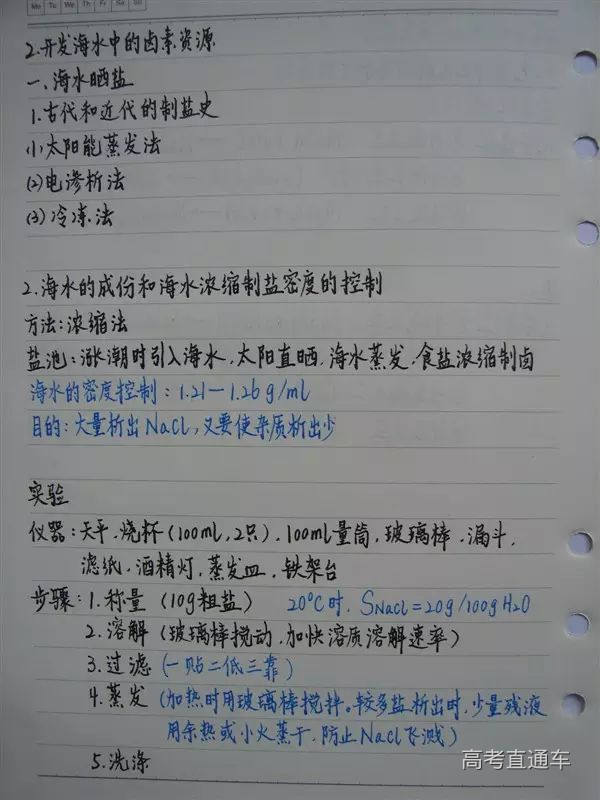 Mo Tu We Th Fr Sa Su
2.开发海水中的卤素资源
一、海水晒盐
1.古代和近代的制盐史
(1)太阳能蒸发法
(2)电渗析法
(3)冷冻法
2.海水的成份和海水浓缩制盐密度的控制
方法:浓缩法
盐池:涨潮时引入海水.太阳直晒.海水蒸发.食盐浓缩制卤
海水的密度控制:1.21—1.26g/ml
目的:大量析出NaCl,又要使杂质析出少
实验
仪器:天平.烧杯(100ml,2只).100ml量筒,玻璃棒.漏斗.
滤纸.酒精灯.蒸发皿.铁架台
步骤:1.称量(10g粗盐) 20°C时.SNaCl=20g/100gH2O
2.溶解(玻璃棒搅动.加快溶质溶解速率)
3.过滤(一贴二低三靠)
4.蒸发(加热时用玻璃棒搅拌。较多盐析出时.少量残液
用余热或小火蒸干.防止NaCl飞溅)
5.洗涤
高考直通车